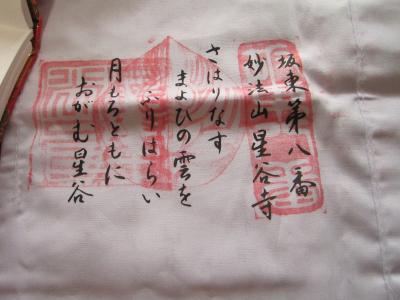 坂東第八番
妙法山星谷寺
さはりなす
まよひの雲を
ふりはらい
月もろともに
おがむ星谷